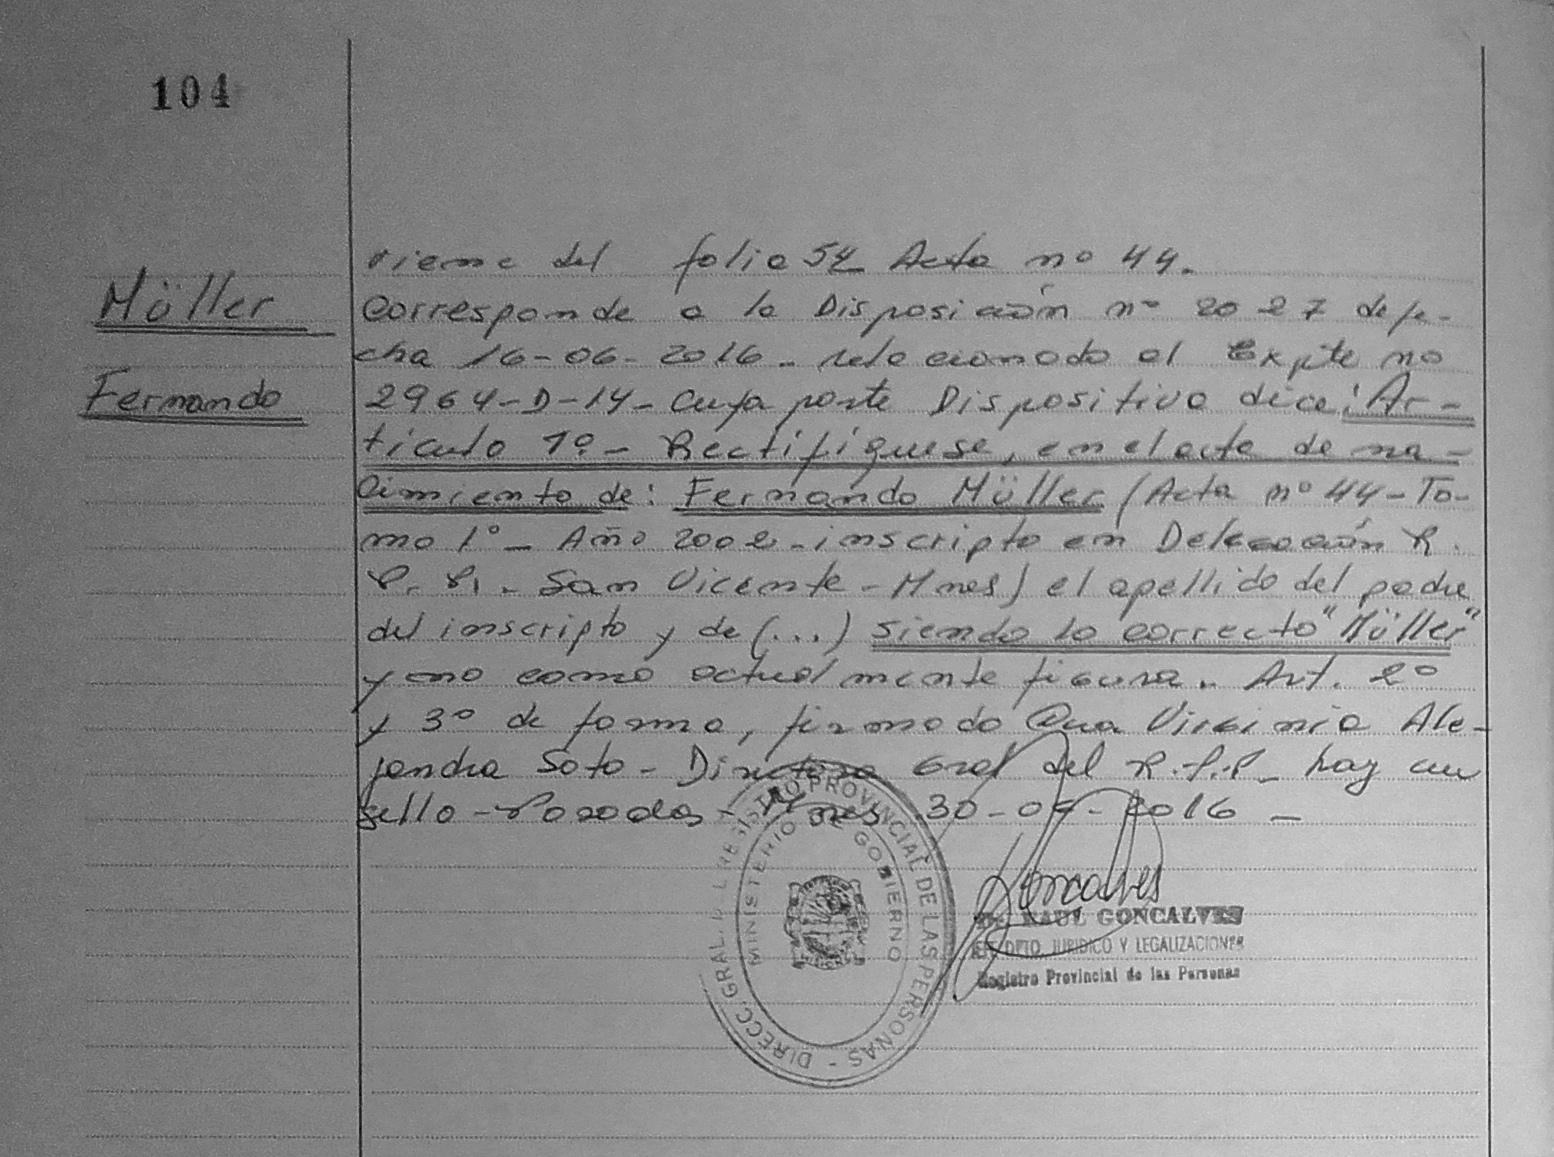 104
Müller
Fernando
viene del folio 52 Acta nº 44.
Corresponde a la Disposición nº 2027 de fe-
cha 16-06-2016- relacionado al Expte nº
2964-D-14- Cuya parte Dispositiva dice: Ar-
tículo 1º- Rectifíquese, en el acta de na-
cimiento de: Fernando Müller (Acta nº 44-To-
mo 1º- Año 2002-inscripto en Delegación R.
P. P. - San Vicente - Mnes) el apellido del padre
del inscripto y de (...) siendo lo correcto "Müller"
y no como actualmente figura. Art. 2º
y 3º de forma, firmado Dra Virginia Ale-
jandra Soto - Directora Gral del R.P.P- hay un
sello - Posadas - Mnes 30-09-2016 -
DIRECC. GRAL. DEL REGISTRO PROVINCIAL DE LAS PERSONAS -
MINISTERIO DE GOBIERNO
Goncalves
RAUL GONCALVES
DPTO JURIDICO Y LEGALIZACIONES
Registro Provincial de las Personas